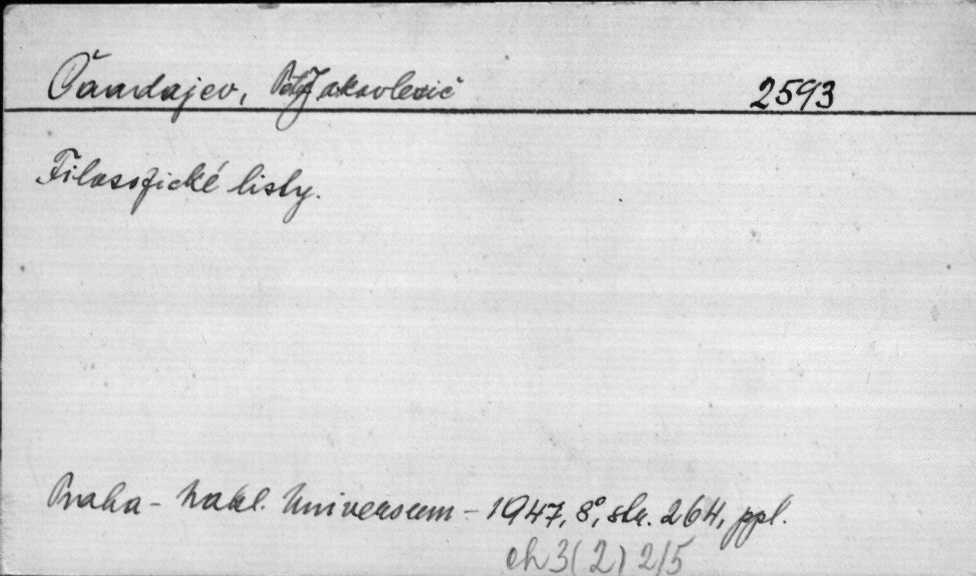 Čaadajev, Jakovlevič 2593
Filosofické listy.
Praha - Nakl. Universum - 1947, 8°, str. 264, ppl.
ch 3(2) 2/5